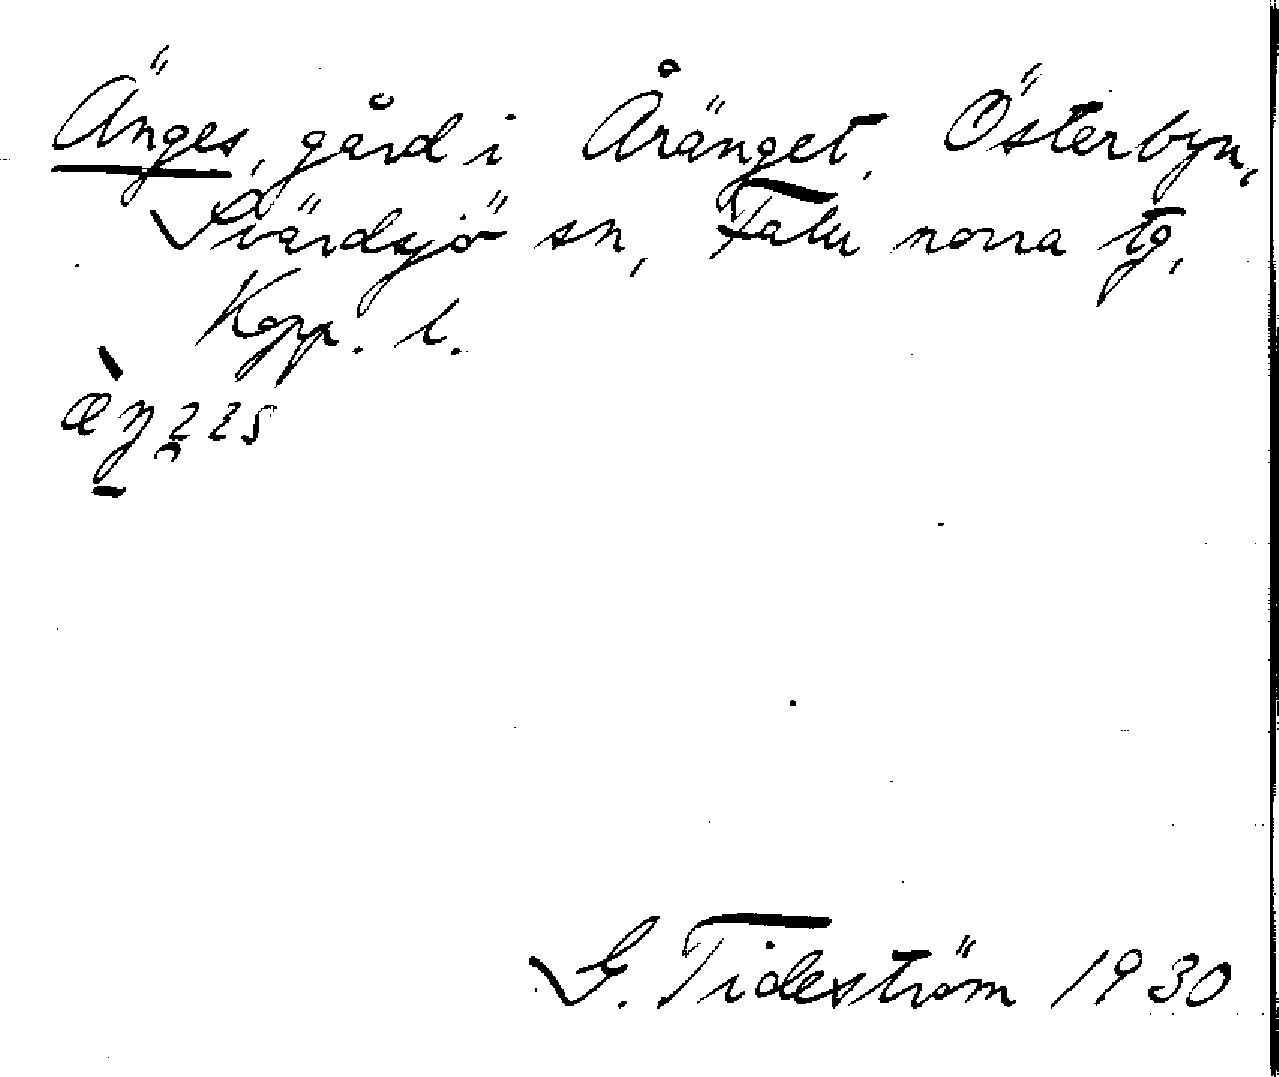 Änges, gård i Åränget, Österbyn,
Svärdsjö sn, Falu norra tg,
Kopp. l.
G. Tideström 1930